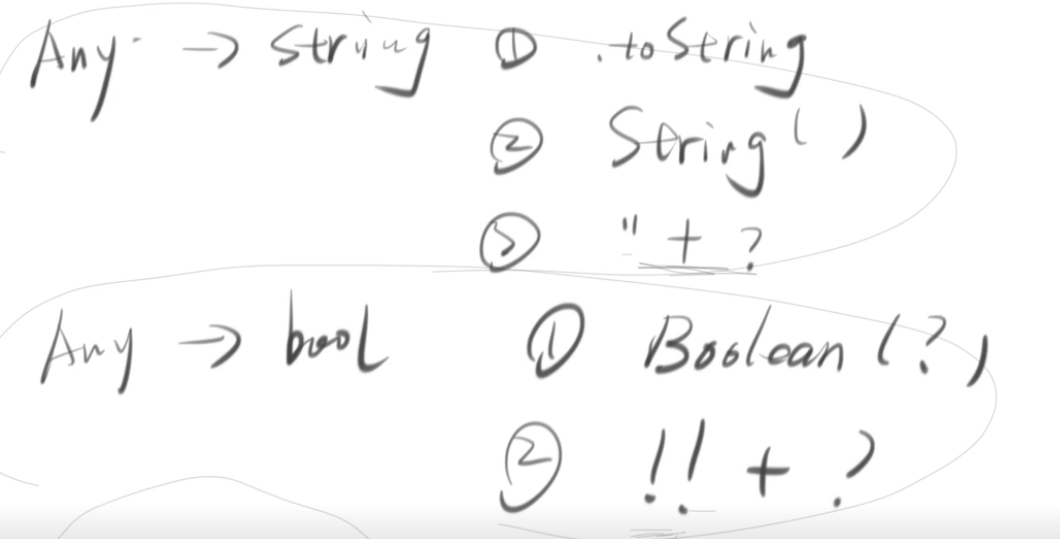 Any → string ① .toString
② String()
③ '' + ?
Any → bool ① Boolean(?)
② !! + ?